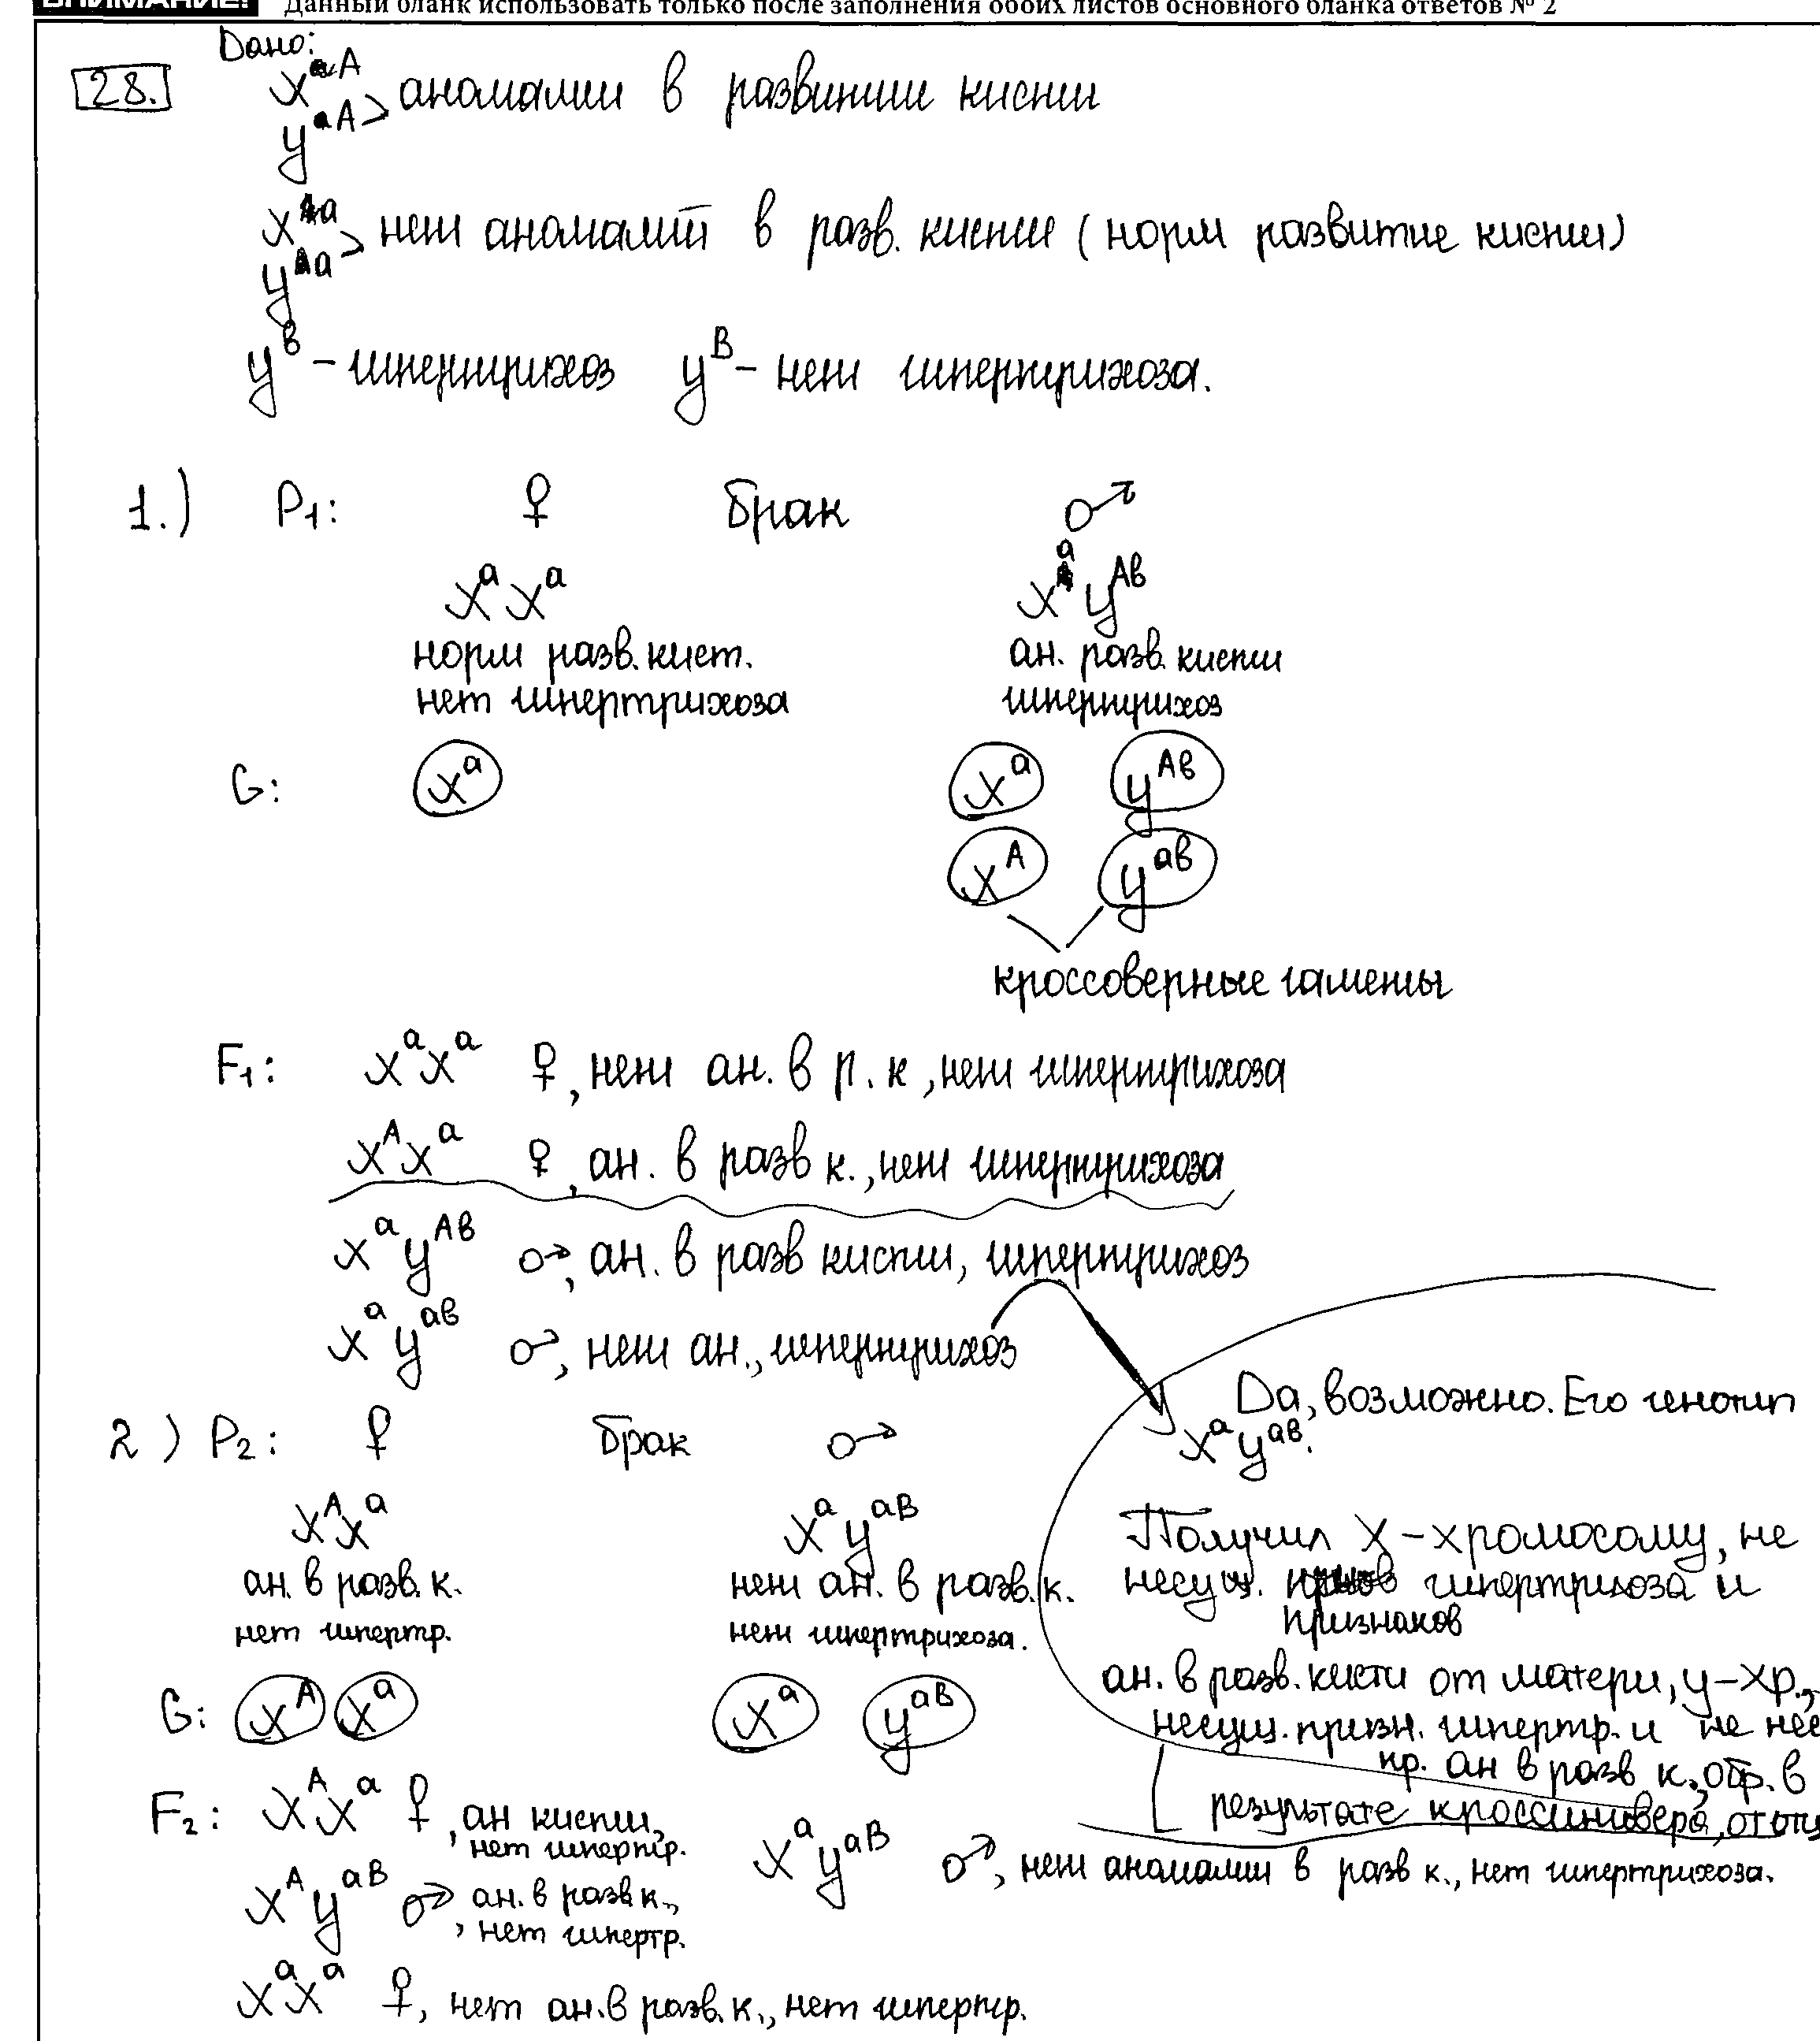 ВНИМАНИЕ! Данный бланк использовать только после заполнения обоих листов основного бланка ответов № 2
28.
Дано:
X^A
> аномалии в развитии кисти
y^A
X^a
> нет аномалий в разв. кисти (норм развитие кисти)
y^a
y^в – гипертрихоз y^В – нет гипертрихоза.
1.) P1: ♀ брак ♂
X^a X^a X^a y^Aв
норм разв. кист. ан. разв. кисти
нет гипертрихоза гипертрихоз
G: X^a X^a y^Aв
X^A y^aв
кроссоверные гаметы
F1: X^a X^a ♀, нет ан. в р. к, нет гипертрихоза
X^A X^a ♀, ан. в разв к., нет гипертрихоза
X^a y^Aв ♂, ан. в разв кисти, гипертрихоз
X^a y^aв ♂, нет ан., гипертрихоз
Да, возможно. Его генотип
X^a y^aв.
Получил X – хромосому, не
несущ. гипертрихоза и
признаков
ан. в разв. кисти от матери, y – хр.,
несущ. призн. гипертр. и не нес
пр. ан в разв к., обр. в
результате кроссинговера, от отц
2) P2: ♀ брак ♂
X^A X^a X^a y^aВ
ан. в разв. к. нет ан. в разв. к.
нет гипертр. нет гипертрихоза.
G: X^A X^a X^a y^aВ
F2: X^A X^a ♀, ан кисти,
нет гипертр.
X^a y^aВ ♂, нет аномалии в разв к., нет гипертрихоза.
X^A y^aВ ♂ ан. в разв к.,
, нет гипертр.
X^a X^a ♀, нет ан. в разв. к., нет гипертр.